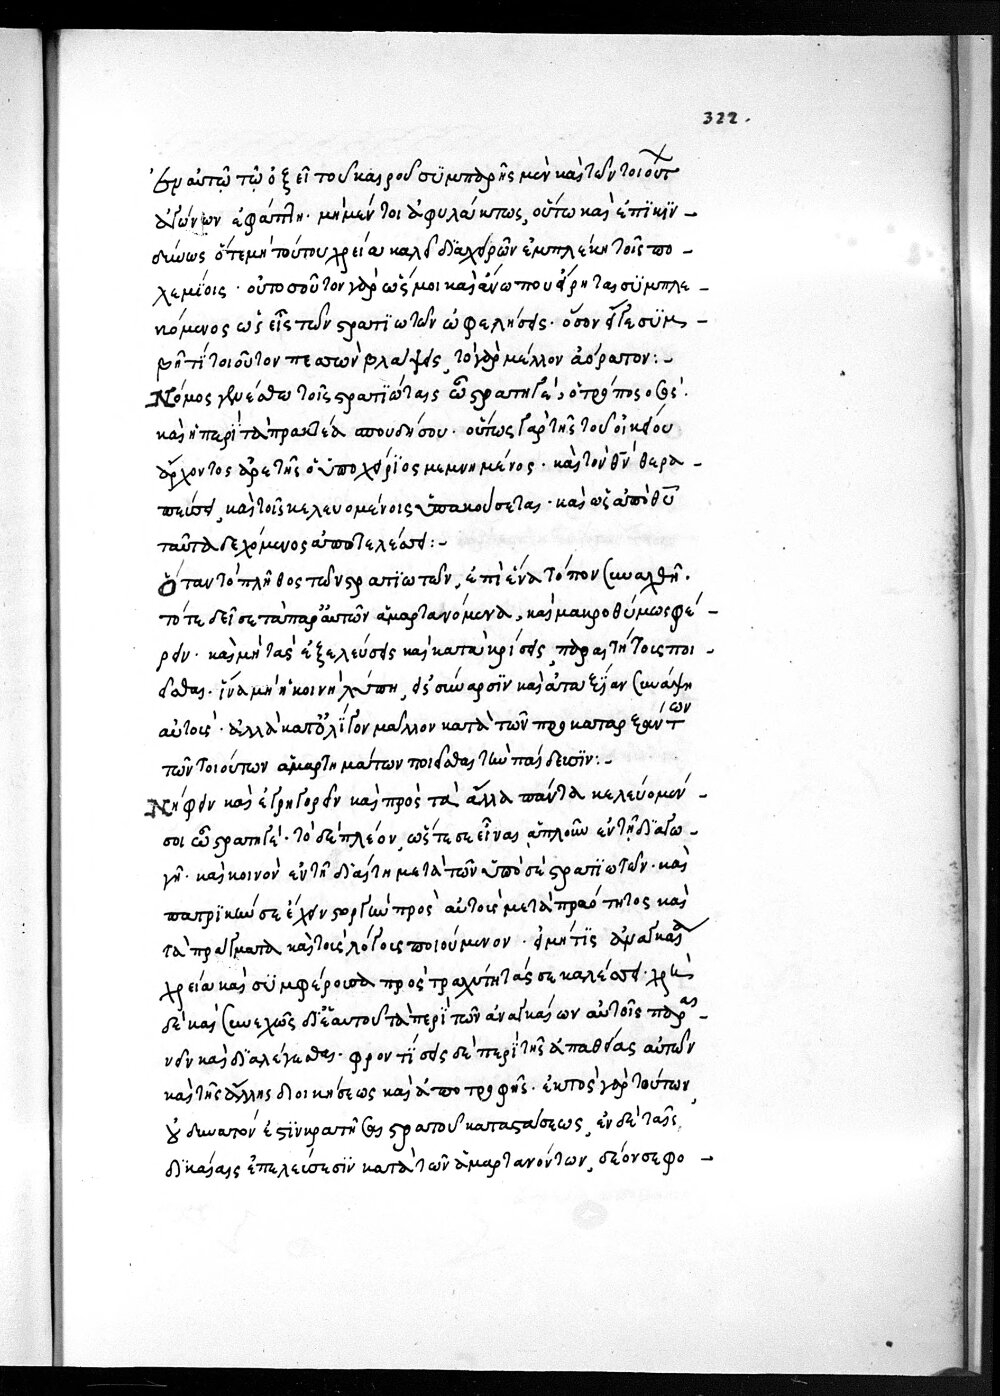 322.
ἐν αὐτῷ τῷ ὀξεῖ τοῦ καιροῦ συμπαρῇς μὲν καὶ τῶν τοιούτ
ἀγώνων ἐφάπτη· μὴ μέν τοι ἀφυλάκτως, οὕτω καὶ ἐπικιν –
δύνως ὅτε μὴ τούτου χρεία καλεῖ διαχειρῶν ἐμπλέκη τοῖς πο –
λεμίοις· οὐ τοσοῦτον γὰρ ὥς μοι καὶ ἄνω που εἴρηται συμπλε –
κόμενος ὡς εἷς τῶν στρατιωτῶν ὠφελήσεις· ὅσον εἴγε συμ –
βῆ τί τοιοῦτον πεσὼν βλάψεις, τὸ γὰρ μέλλον ἀόρατον: –
Νόμος γενέσθω τοῖς στρατιώταις ὦ στρατηγέ, ὁ τρόπος ὁ σὸς·
καὶ ἡ περὶ τὰ πρακτέα σπουδή σου· οὕτως γὰρ τῆς τοῦ οἰκείου
ἄρχοντος ἀρετῆς ὁ ὑποχείριος μεμνημένος· καὶ τὸν θν θερα –
πεύσει, καὶ τοῖς κελευομένοις ὑπακούσεται· καὶ ὡς ἀπὸ θυ
ταῦτα δεχόμενος ἀποτελέσει: –
Ὅταν τὸ πλῆθος τῶν στρατιωτῶν, ἐπὶ ἕνα τόπον συναχθῆ·
τότε δεῖ σε τὰ παρ' αὐτῶν ἁμαρτανόμενα, καὶ μακροθύμως φέ –
ρειν· καὶ μὴ ταῖς ἐξελεύσεις καὶ κατακρίσεις, παρὰ στήτοις ποι –
εῖσθαι· ἵνα μὴ ἡ κοινὴ λύπη, εἰς σύναρσιν καὶ ἀταξίαν συνάψη
αὐτοῖς· ἀλλὰ κατ' ὀλίγον μᾶλλον κατὰ τῶν προκαταρξάντων
τῶν τοιούτων ἁμαρτημάτων ποιεῖσθαι τὴν παίδευσιν: –
Νήφειν καὶ ἐγρηγορεῖν καὶ πρὸς τὰ ἄλλα πάντα κελεύομέν –
σοι ὦ στρατηγέ· τὸ δὲ πλέον, ὥστε σε εἶναι ἁπλοῦν ἐν τῇ διαγω –
γῇ· καὶ κοινὸν ἐν τῇ διαίτη μετὰ τῶν ὑπό σε στρατιωτῶν· καὶ
πατρικήν σε ἔχειν στοργὴν πρὸς αὐτοὺς μετὰ πραότητος καὶ
τὰ πράγματα καὶ τοὺς λόγους ποιούμενον· εἰ μή τις ἀναγκαία
χρεία καὶ συμφέρουσα πρὸς τραχύτητάς σε καλέσει· χρὴ
δὲ καὶ συνεχῶς δι' ἑαυτοῦ τὰ περὶ τῶν ἀναγκαίων αὐτοῖς παραι –
νεῖν καὶ διαλέγεσθαι· φροντίσεις δὲ περὶ τῆς ἀπαθείας αὐτῶν
καὶ τῆς ἄλλης διοικήσεως καὶ ἀποτροφῆς· ἐκτὸς γὰρ τούτων,
οὐ δυνατόν ἐστιν κρατῆσαι στρατοῦ καταστάσεως, ἐν δὲ ταῖς
δικαίαις ἐπελεύσεσιν κατὰ τῶν ἁμαρτανόντων, δέον σε φο –